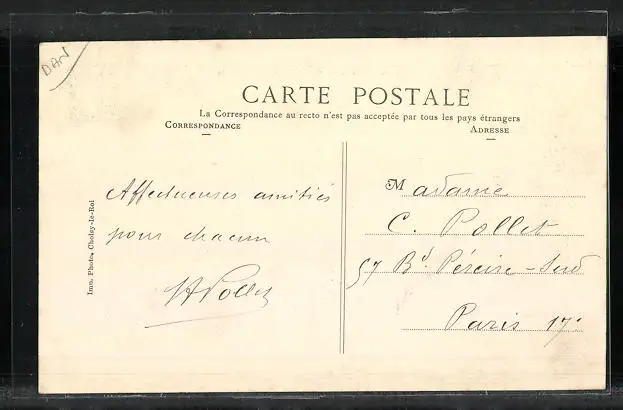 DAN
CARTE POSTALE
La Correspondance au recto n'est pas acceptée par tous les pays étrangers
CORRESPONDANCE
ADRESSE
Imp. Photo. Choisy-le-Roi
Affectueuses amitiés
pour chacun
Pollet
Madame
C. Pollet
57 Bd. Péreire - Sud
Paris 17e